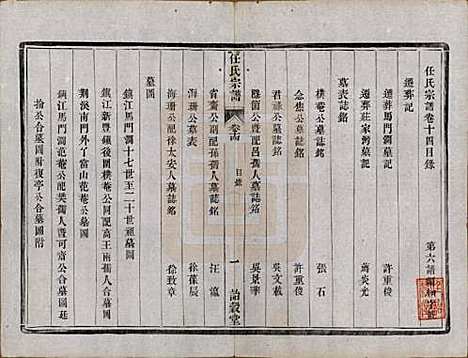 任氏宗譜卷十四目錄
遷葬記
遷葬馬門澗墓記 許重俊
遷葬莊家灣墓記 蔣炎光
墓表誌銘
樸菴公墓誌銘 張石
念焦公墓誌銘 許重俊
君祿公墓誌銘 吳文載
盤菊公暨配呂孺人墓誌銘 吳景華
任氏宗譜 卷十四 目錄 一 詒穀堂
省齋公副配孫孺人墓誌銘 汪瀛
海珊公墓表 徐葆辰
海珊公配徐太安人墓誌銘 徐致章
墓圖
鎮江馬門澗十七世至二十世祖墓圖
鎮江新豐鎮後樸菴公同配高王兩孺人合墓圖
荊溪南門外了富山范菴公墓圖
鎮江馬門澗范菴公配樊孺人暨可齋公合墓圖
掄公合墓圖附復亭公合墓圖附